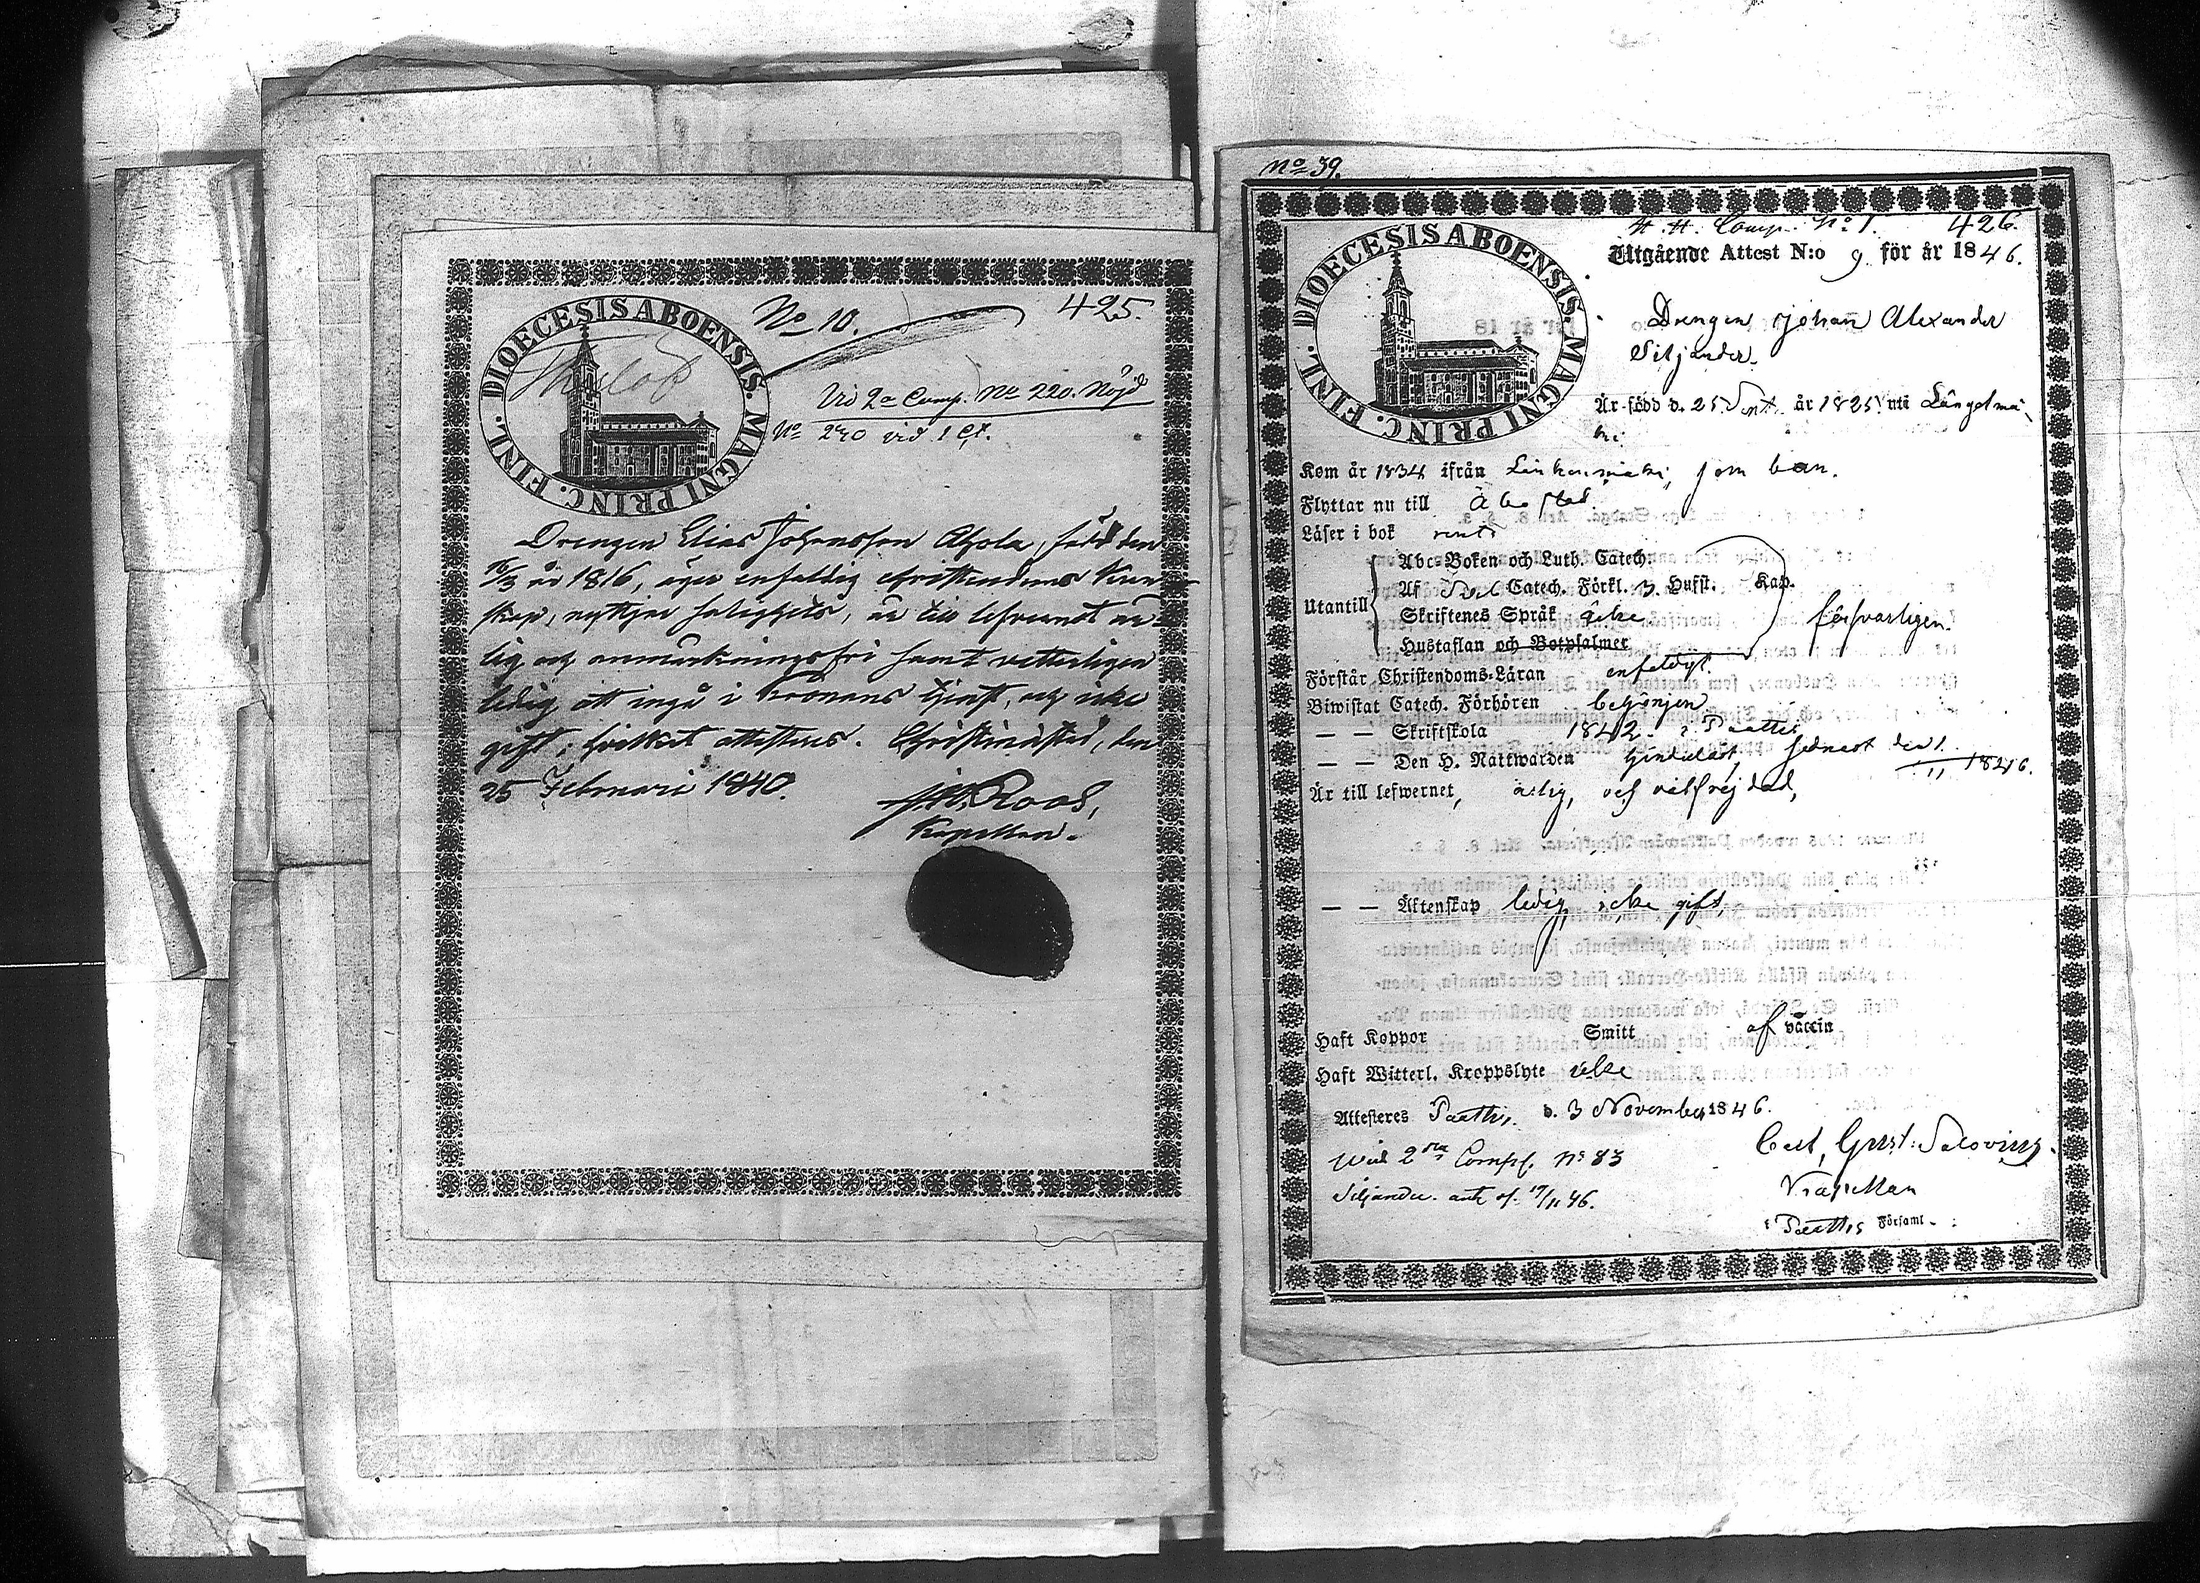 No 10.
425.
DIOECESIS ABOENSIS. MAGNI PRINC. FINL.
Vid 2a Comp. No 220. Nöjd
No 240 vid 1 Ct.
Drengen Elias Johansson Ahola, född den
16/3 år 1816, äger enfaldig christendoms kun-
skap, nyttjar salighets, är till lefvernet är-
lig och anmärkningsfri samt vetterligen
ledig att ingå i Kronans tjenst, och icke
gift; hvilket attesteras. Christinestad, den
25 Februari 1840.
Roos,
Kapellan.
No 39.
Comp. No 1. 426.
DIOECESIS ABOENSIS. MAGNI PRINC. FINL.
Utgående Attest N:o 9 för år 1846.
Drengen Johan Alexander
Siljander.
Är född d. 25 Sept. år 1825 uti Längelmä-
ki
Kom år 1834 ifrån som barn.
Flyttar nu till Åbo stad
Läser i bok rent
Abc-Boken och Luth. Catech.
Af Catech. Förkl. 3. Hufst. Kap.
Utantill
Skriftenes Språk icke
försvarligen.
Hustaflan och Botpsalmer
Förstår Christendoms-Läran enfaldigt
Biwistat Catech. Förhören begynjen
— — Skriftskola 1842 i Paattis
— — Den H. Nattwarden sednast den 1/11 1846.
Är till lefwernet, ärlig, och välfrejdad,
— — Äktenskap ledig, icke gift,
Haft Koppor Smitt af vaccin
Haft Witterl. Kroppslyte icke
Attesteras Paattis, d. 3 November 1846.
Carl Gust. Salovius.
Wid 2dra Comp. No 83
Siljander. ant. d. 17/11 46.
Kapellan
i Paattis Församl.